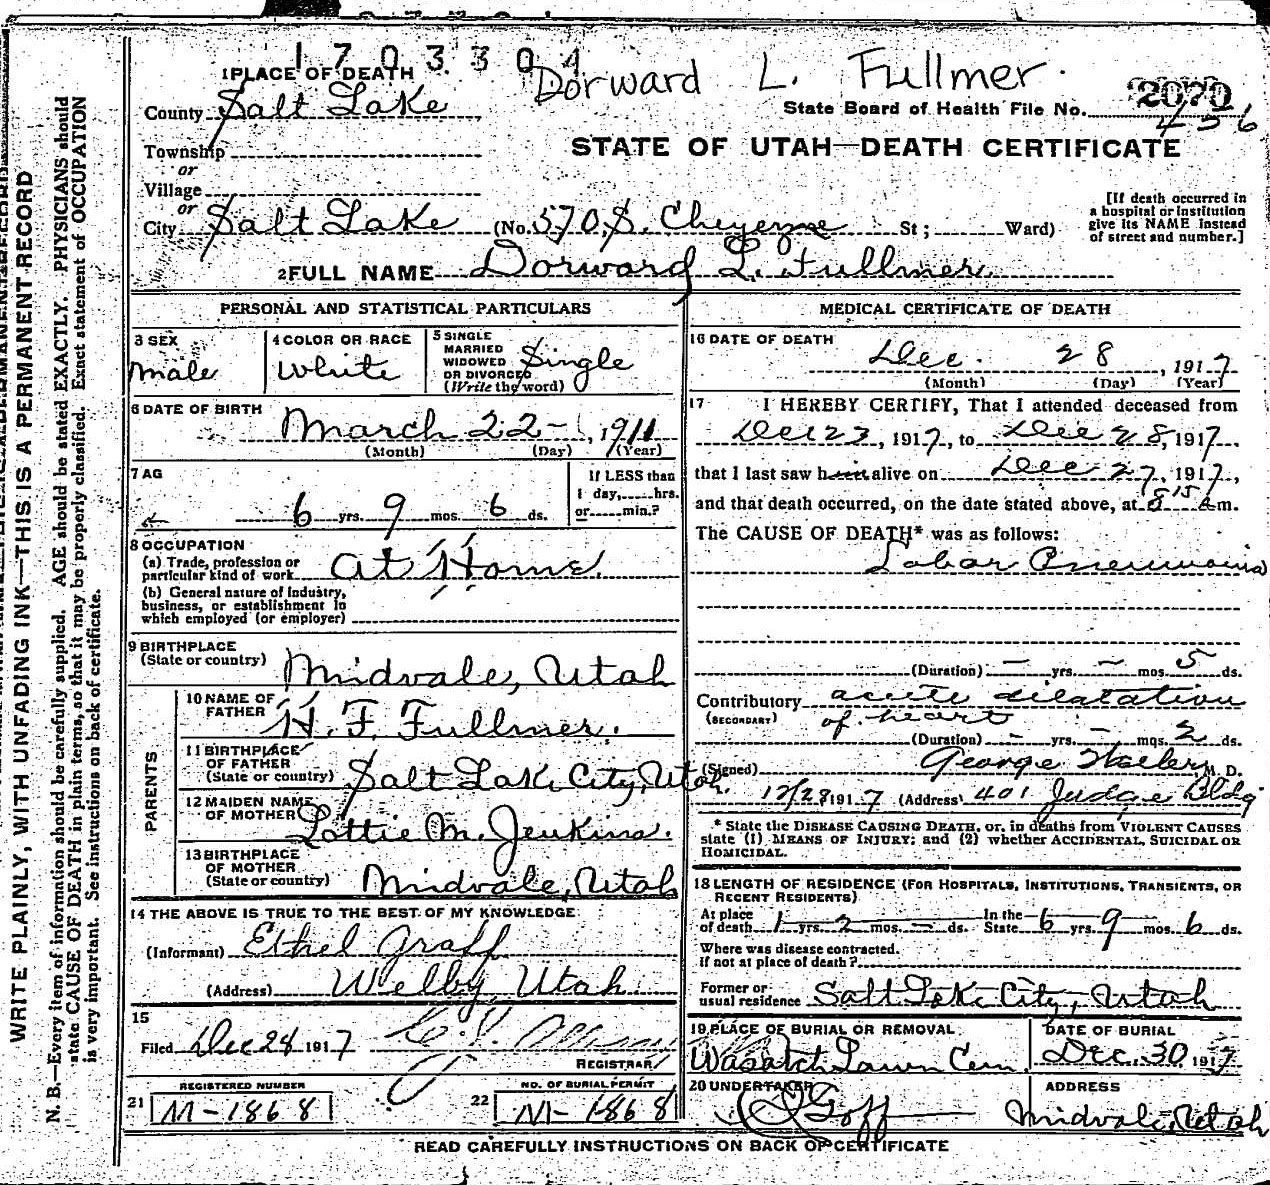 1703304
Dorward L. Fullmer.
1 PLACE OF DEATH
County Salt Lake
State Board of Health File No. 2070
456
Township
or
STATE OF UTAH—DEATH CERTIFICATE
Village
or
City Salt Lake (No. 570 S. Cheyenne St; Ward)
[If death occurred in
a hospital or institution
give its NAME instead
of street and number.]
2 FULL NAME Dorward L. Fullmer
PERSONAL AND STATISTICAL PARTICULARS
3 SEX
Male
4 COLOR OR RACE
White
5 SINGLE
MARRIED
WIDOWED
OR DIVORCED
(Write the word)
Single
6 DATE OF BIRTH
March 22 - , 1911
(Month) (Day) (Year)
7 AG
6 yrs. 9 mos. 6 ds.
If LESS than
1 day, hrs.
or min.?
8 OCCUPATION
(a) Trade, profession or
particular kind of work At Home.
(b) General nature of Industry,
business, or establishment in
which employed (or employer)
9 BIRTHPLACE
(State or country) Midvale, Utah
PARENTS
10 NAME OF
FATHER H. F. Fullmer.
11 BIRTHPLACE
OF FATHER
(State or country) Salt Lake City, Utah.
12 MAIDEN NAME
OF MOTHER Lottie M. Jenkins.
13 BIRTHPLACE
OF MOTHER
(State or country) Midvale, Utah
14 THE ABOVE IS TRUE TO THE BEST OF MY KNOWLEDGE
(Informant) Ethel Graff
(Address) Welby, Utah
15
Filed Dec 28 1917
REGISTRAR
REGISTERED NUMBER
21 M-1868
NO. OF BURIAL PERMIT
22 M-1868
MEDICAL CERTIFICATE OF DEATH
16 DATE OF DEATH
Dec. 28, 1917
(Month) (Day) (Year)
17 I HEREBY CERTIFY, That I attended deceased from
Dec 23, 1917, to Dec 28, 1917,
that I last saw him alive on Dec 27, 1917,
and that death occurred, on the date stated above, at 8 15 a m.
The CAUSE OF DEATH* was as follows:
Lobar Pneumonia
(Duration) — yrs. — mos. 5 ds.
Contributory acute dilatation
(SECONDARY) of heart
(Duration) — yrs. — mos. 2 ds.
(Signed) George M. D.
12/28 1917 (Address) 401 Judge Bldg
* State the DISEASE CAUSING DEATH, or, in deaths from VIOLENT CAUSES
state (1) MEANS OF INJURY; and (2) whether ACCIDENTAL, SUICIDAL OR
HOMICIDAL.
18 LENGTH OF RESIDENCE (FOR HOSPITALS, INSTITUTIONS, TRANSIENTS, OR
RECENT RESIDENTS)
At place
of death 1 yrs. 2 mos. — ds.
In the
State 6 yrs. 9 mos. 6 ds.
Where was disease contracted.
if not at place of death?
Former or
usual residence Salt Lake City, Utah
19 PLACE OF BURIAL OR REMOVAL
Wasatch Lawn Cem.
DATE OF BURIAL
Dec. 30, 1917
20 UNDERTAKER
Goff
ADDRESS
Midvale, Utah
READ CAREFULLY INSTRUCTIONS ON BACK OF CERTIFICATE
WRITE PLAINLY, WITH UNFADING INK—THIS IS A PERMANENT RECORD
N. B.—Every item of information should be carefully supplied. AGE should be stated EXACTLY. PHYSICIANS should
state CAUSE OF DEATH in plain terms, so that it may be properly classified. Exact statement of OCCUPATION
is very important. See instructions on back of certificate.